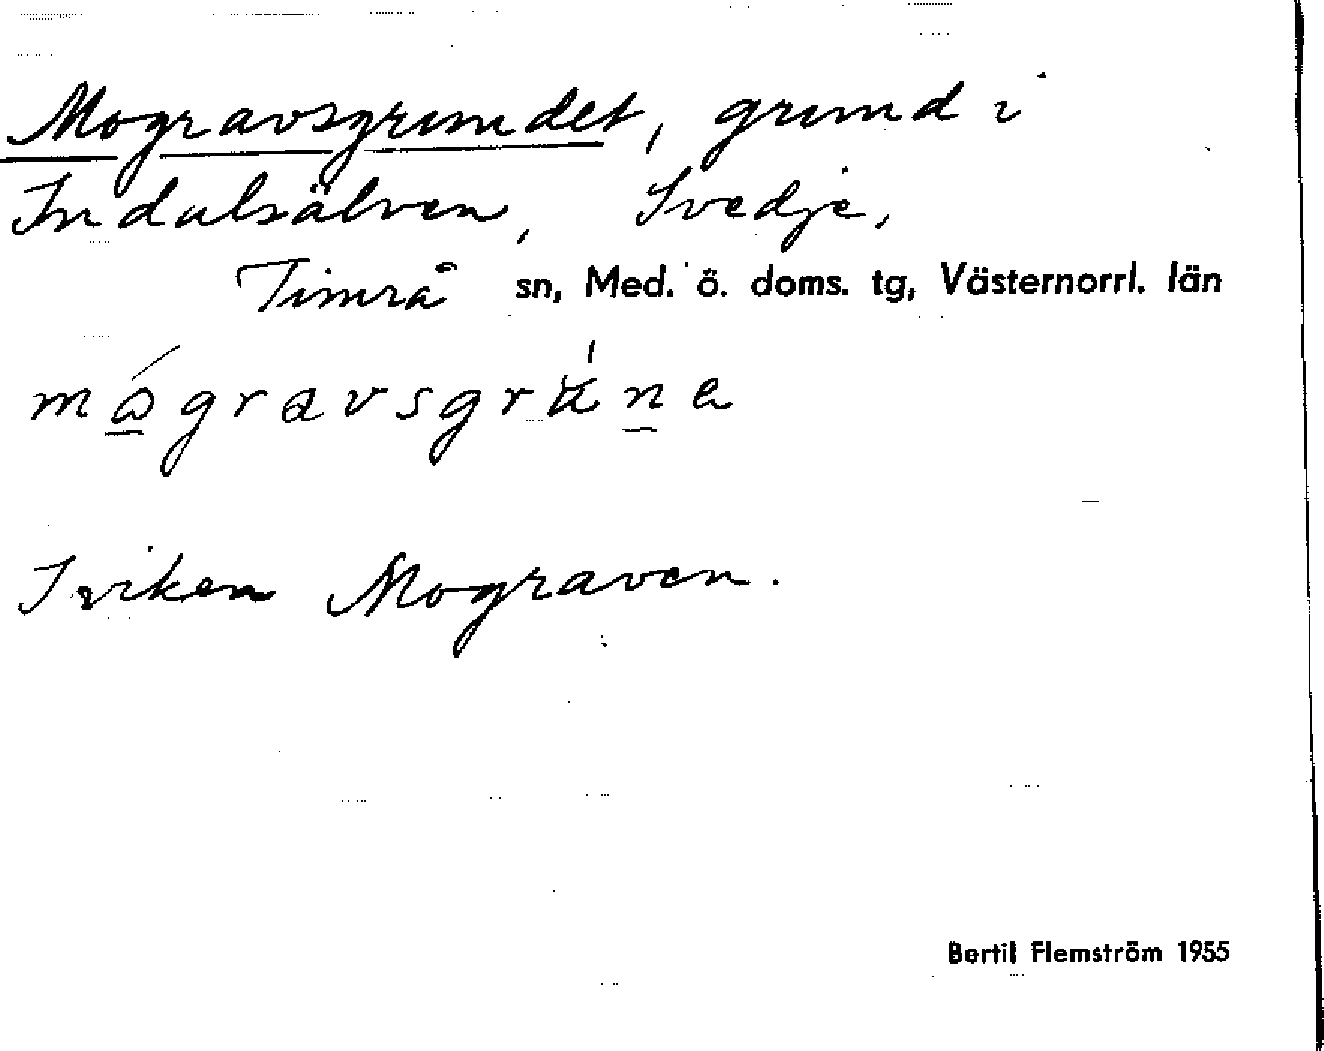 Mogravsgrundet, grund i
Indalsälven, Svedje,
Timrå sn, Med. ö. doms. tg, Västernorrl. län
I viken Mograven.
Bertil Flemström 1955